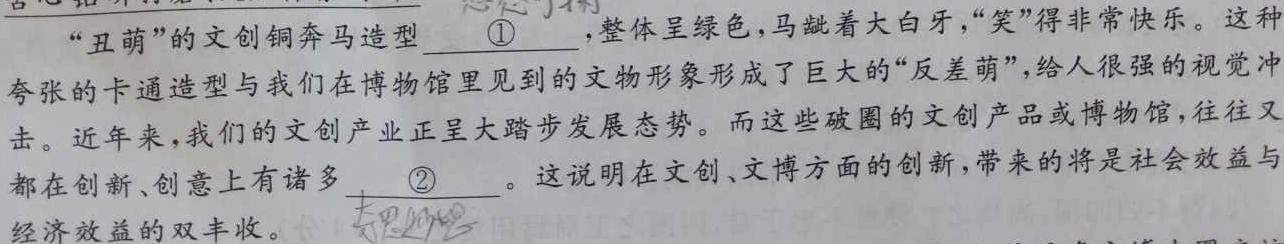 “丑萌”的文创铜奔马造型 ① ,整体呈绿色,马龇着大白牙,“笑”得非常快乐。这种
夸张的卡通造型与我们在博物馆里见到的文物形象形成了巨大的“反差萌”,给人很强的视觉冲
击。近年来,我们的文创产业正呈大踏步发展态势。而这些破圈的文创产品或博物馆,往往又
都在创新、创意上有诸多 ② 。这说明在文创、文博方面的创新,带来的将是社会效益与
经济效益的双丰收。